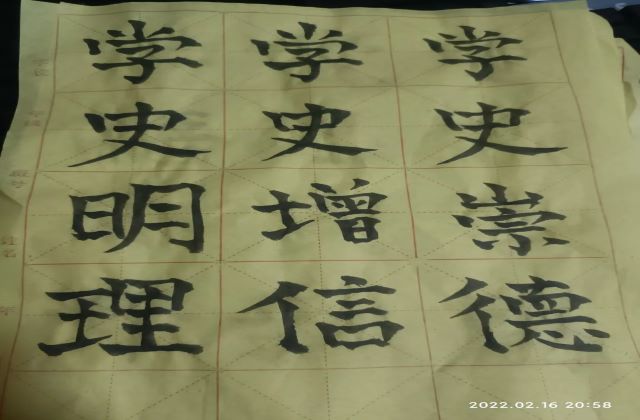 学史明理
学史增信
学史崇德
姓名
2022.02.16 20:58